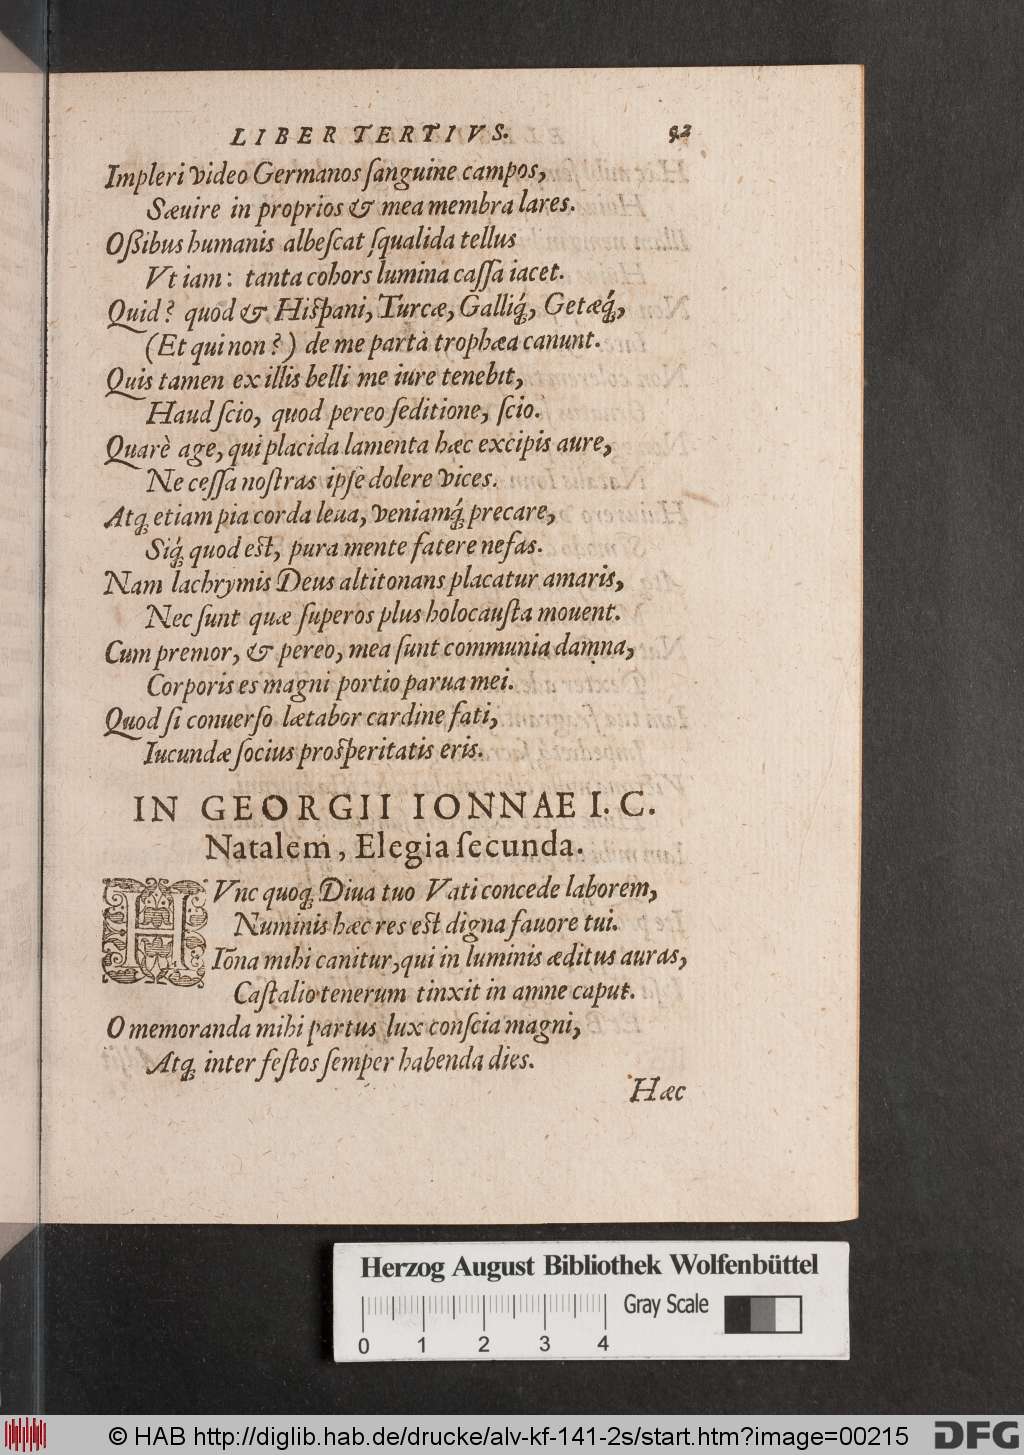 LIBER TERTIVS. 92
Impleri video Germanos ſanguine campos,
Sæuire in proprios & mea membra lares.
Oßibus humanis albeſcat ſqualida tellus
Vt iam: tanta cohors lumina caſſa iacet.
Quid? quod & Hiſpani, Turcæ, Galliq́ꝫ, Getæq́ꝫ,
(Et qui non?) de me parta trophæa canunt.
Quis tamen ex illis belli me iure tenebit,
Haud ſcio, quod pereo ſeditione, ſcio.
Quarè age, qui placida lamenta hæc excipis aure,
Ne ceſſa noſtras ipſè dolere vices.
Atqꝫ etiam pia corda leua, veniamq́ꝫ precare,
Siq́ꝫ quod eſt, pura mente fatere nefas.
Nam lachrymis Deus altitonans placatur amaris,
Nec ſunt quæ ſuperos plus holocauſta mouent.
Cum premor, & pereo, mea ſunt communia damna,
Corporis es magni portio parua mei.
Quod ſi conuerſo lætabor cardine fati,
Iucundæ ſocius proſperitatis eris.
IN GEORGII IONNAE I. C.
Natalem, Elegia ſecunda.
HVnc quoqꝫ Diua tuo Vati concede laborem,
Numinis hæc res eſt digna fauore tui.
Iōna mihi canitur, qui in luminis æditus auras,
Caſtalio tenerum tinxit in amne caput.
O memoranda mihi partus lux conſcia magni,
Atqꝫ inter feſtos ſemper habenda dies.
Hæc
Herzog August Bibliothek Wolfenbüttel
Gray Scale
0 1 2 3 4
© HAB http://diglib.hab.de/drucke/alv-kf-141-2s/start.htm?image=00215
DFG